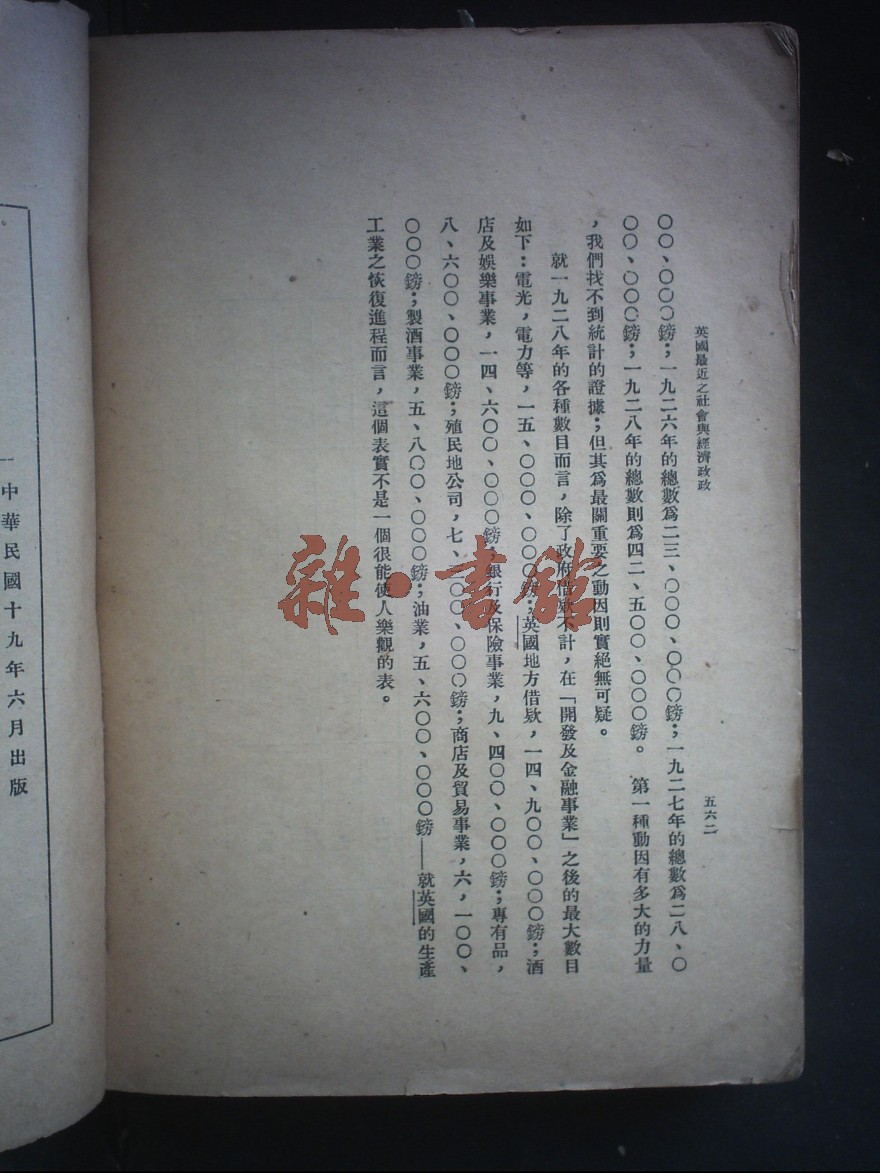 英國最近之社會與經濟政政
五六二
〇〇、〇〇〇鎊；一九二六年的總數爲二三、〇〇〇、〇〇〇鎊；一九二七年的總數爲二八、〇
〇〇、〇〇〇鎊；一九二八年的總數則爲四二、五〇〇、〇〇〇鎊。　第一種動因有多大的力量
，我們找不到統計的證據；但其爲最關重要之動因則實絕無可疑。
就一九二八年的各種數目而言，除了政府借欵不計，在「開發及金融事業」之後的最大數目
如下：電光，電力等，一五、〇〇〇、〇〇〇鎊；英國地方借欵，一四、九〇〇、〇〇〇鎊；酒
店及娛樂事業，一四、六〇〇、〇〇〇鎊；銀行及保險事業，九、四〇〇、〇〇〇鎊；專有品，
八、六〇〇、〇〇〇鎊；殖民地公司，七、〇〇、〇〇〇鎊；商店及貿易事業，六，一〇〇、
〇〇〇鎊；製酒事業，五、八〇〇、〇〇〇鎊；油業，五、六〇〇、〇〇〇鎊——就英國的生產
工業之恢復進程而言，這個表實不是一個很能使人樂觀的表。
中華民國十九年六月出版
雜·書館